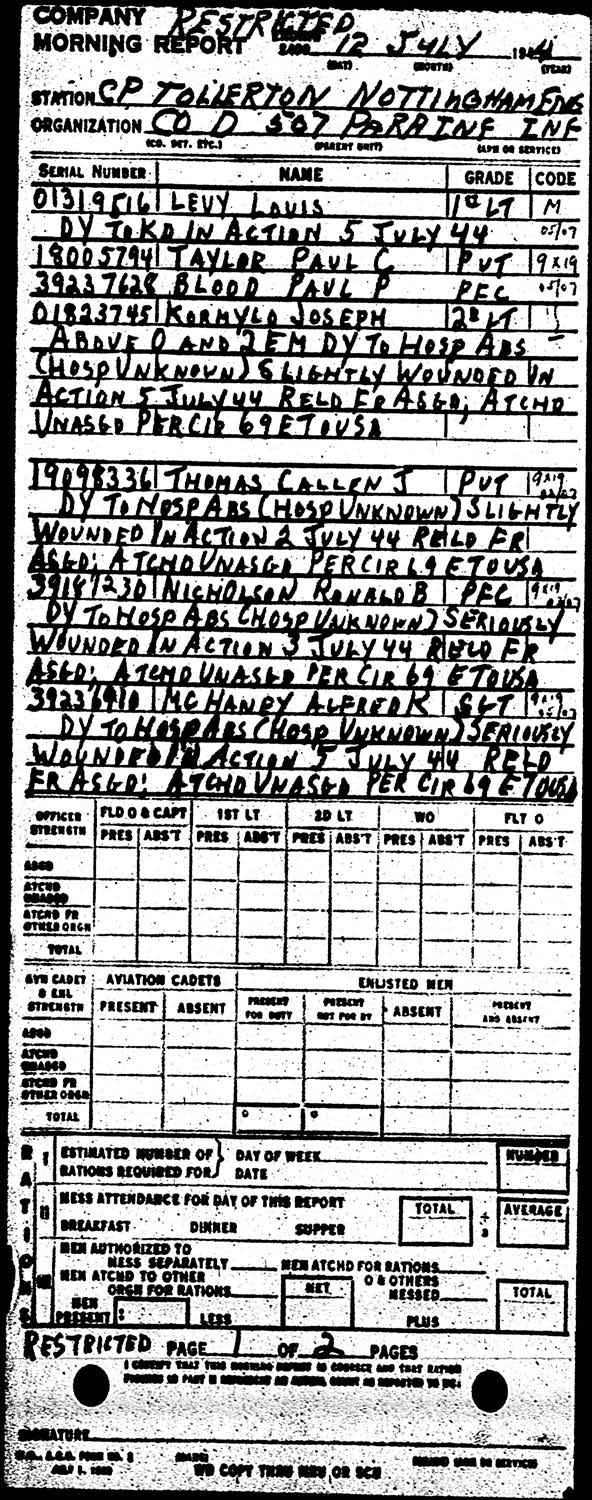 COMPANY RESTRICTED
MORNING REPORT 2400 12 JULY 1944
(DAY) (MONTH) (YEAR)
STATION CP TOLLERTON NOTTINGHAM ENG
ORGANIZATION CO D 507 PARA INF INF
(CO. DET. ETC.) (PARENT UNIT) (ARM OR SERVICE)
SERIAL NUMBER NAME GRADE CODE
01319516 LEVY LOUIS 1st LT M
DY TO KD IN ACTION 5 JULY 44 05/07
18005794 TAYLOR PAUL C PVT 9x19
39237628 BLOOD PAUL P PFC 05/07
01823745 KORMYLO JOSEPH 2d LT
ABOVE O AND 2 EM DY TO HOSP ABS
(HOSP UNKNOWN) SLIGHTLY WOUNDED IN
ACTION 5 JULY 44 RELD FR ASGD; ATCHD
UNASGD PER CIR 69 ETOUSA
19098336 THOMAS CALLEN J PVT 9x19
DY TO HOSP ABS (HOSP UNKNOWN) SLIGHTLY
WOUNDED IN ACTION 2 JULY 44 RELD FR
ASGD; ATCHD UNASGD PER CIR 69 ETOUSA
39187230 NICHOLSON RONALD B PFC 9x19
DY TO HOSP ABS (HOSP UNKNOWN) SERIOUSLY
WOUNDED IN ACTION 3 JULY 44 RELD FR
ASGD; ATCHD UNASGD PER CIR 69 ETOUSA
39236910 MC HANEY ALFRED K SGT 9x19 05/07
DY TO HOSP ABS (HOSP UNKNOWN) SERIOUSLY
WOUNDED IN ACTION 5 JULY 44 RELD
FR ASGD; ATCHD UNASGD PER CIR 69 ETOUSA
OFFICER STRENGTH FLD O & CAPT 1ST LT 2D LT WO FLT O
PRES ABS'T PRES ABS'T PRES ABS'T PRES ABS'T PRES ABS'T
ASGD
ATCHD UNASGD
ATCHD FR OTHER ORGN
TOTAL
AVN CADET & ENL STRENGTH AVIATION CADETS ENLISTED MEN
PRESENT ABSENT PRESENT FOR DUTY PRESENT NOT FOR DY ABSENT PRESENT AND ABSENT
ASGD
ATCHD UNASGD
ATCHD FR OTHER ORGN
TOTAL
RATIONS
I ESTIMATED NUMBER OF RATIONS REQUIRED FOR DAY OF WEEK DATE NUMBER
II MESS ATTENDANCE FOR DAY OF THIS REPORT TOTAL ÷ 3 AVERAGE
BREAKFAST DINNER SUPPER
III MEN AUTHORIZED TO MESS SEPARATELY MEN ATCHD FOR RATIONS
MEN ATCHD TO OTHER ORGN FOR RATIONS NET O & OTHERS MESSED TOTAL
MEN PRESENT LESS PLUS
RESTRICTED PAGE 1 OF 2 PAGES
I CERTIFY THAT THIS MORNING REPORT IS CORRECT AND THAT RATION
SIGNATURE
W.D., A.G.O. FORM NO. 1
JULY 1,
WD COPY THRU MRU OR SCU